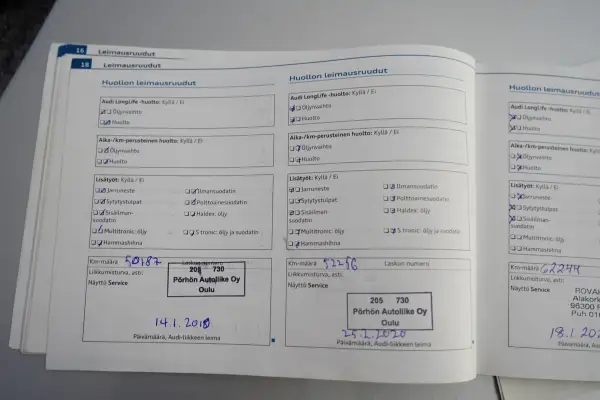 16 Leimausruudut
18 Leimausruudut
Huollon leimausruudut
Audi LongLife -huolto: Kyllä / Ei
Öljynvaihto
Huolto
Aika-/km-perusteinen huolto: Kyllä / Ei
Öljynvaihto
Huolto
Lisätyöt: Kyllä / Ei
Jarruneste
Ilmansuodatin
Sytytystulpat
Polttoainesuodatin
Sisäilman-
suodatin
Haldex: öljy
Multitronic: öljy
S tronic: öljy ja suodatin
Hammashihna
Km-määrä 50187 Laskun numero
Liikkumisturva, asti:
Näyttö Service
205 730
Pörhön Autoliike Oy
Oulu
14.1.
Päivämäärä, Audi-liikkeen leima
Huollon leimausruudut
Audi LongLife -huolto: Kyllä / Ei
Öljynvaihto
Huolto
Aika-/km-perusteinen huolto: Kyllä / Ei
Öljynvaihto
Huolto
Lisätyöt: Kyllä / Ei
Jarruneste
Ilmansuodatin
Sytytystulpat
Polttoainesuodatin
Sisäilman-
suodatin
Haldex: öljy
Multitronic: öljy
S tronic: öljy ja suodatin
Hammashihna
Km-määrä 52256 Laskun numero
Liikkumisturva, asti:
Näyttö Service
205 730
Pörhön Autoliike Oy
Oulu
25.2.2020
Päivämäärä, Audi-liikkeen leima
Huollon leimausruudut
Audi LongLife -huolto: Kyllä / Ei
Öljynvaihto
Huolto
Aika-/km-perusteinen huolto: Kyllä
Öljynvaihto
Huolto
Lisätyöt: Kyllä / Ei
Jarruneste
Sytytystulpat
Sisäilman-
suodatin
Multitronic: öljy
Hammashihna
Km-määrä 62244
Liikkumisturva, asti:
Näyttö Service
ROVA
Alakork
98300 R
Puh 01
18.1.202
Päivämäärä, Au